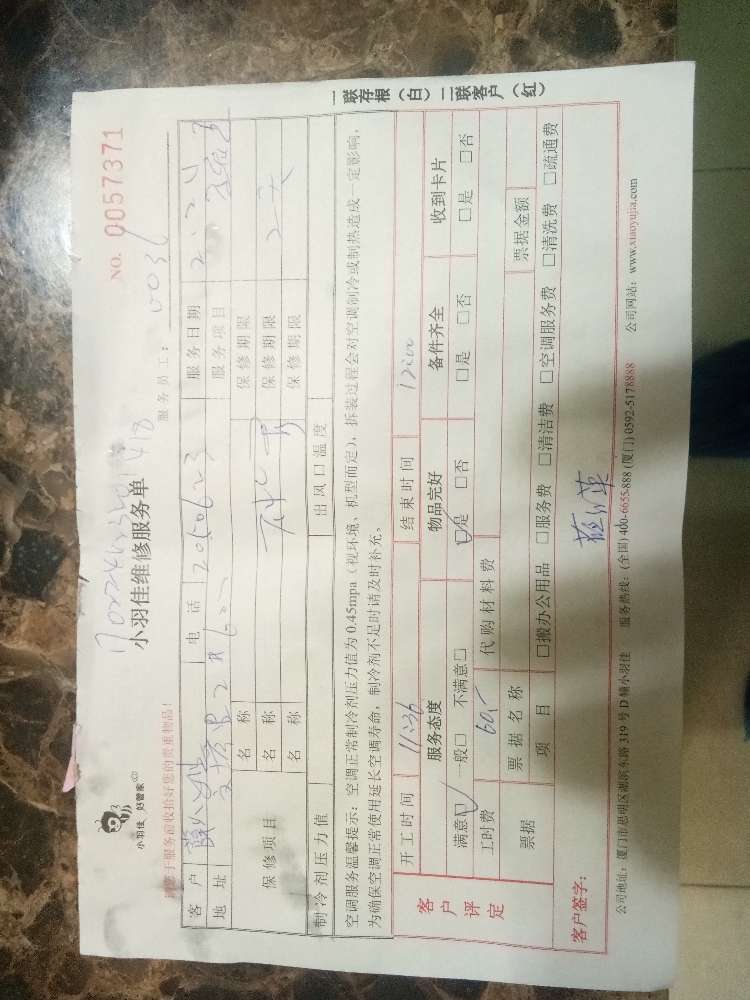 小羽佳 好管家
NO. 0057371
小羽佳维修服务单
服务员工： 0036
请您于服务前收拾好您的贵重物品！
客户 电话 2050623 服务日期 2.24
地址 服务项目
保修项目 名称 保修期限
名称 保修期限
名称 保修期限
制冷剂压力值 出风口温度
空调服务温馨提示：空调正常制冷剂压力值为0.45mpa（视环境、机型而定），拆装过程会对空调制冷或制热造成一定影响，
为确保空调正常使用延长空调寿命，制冷剂不足时请及时补充。
客户评定
开工时间 11:36 结束时间 12:00
服务态度 物品完好 备件齐全 收到卡片
满意□ 一般□ 不满意□ □是 □否 □是 □否 □是 □否
工时费 60.- 代购材料费
票据 票据名称 票据金额
项目 □搬办公用品 □服务费 □清洁费 □空调服务费 □清洗费 □疏通费
客户签字：
公司地址：厦门市思明区湖滨东路 319 号 D 幢小羽佳 服务热线：(全国) 400-6655-888 (厦门) 0592-5178888 公司网站：www.xiaoyujia.com
一联存根（白）二联客户（红）